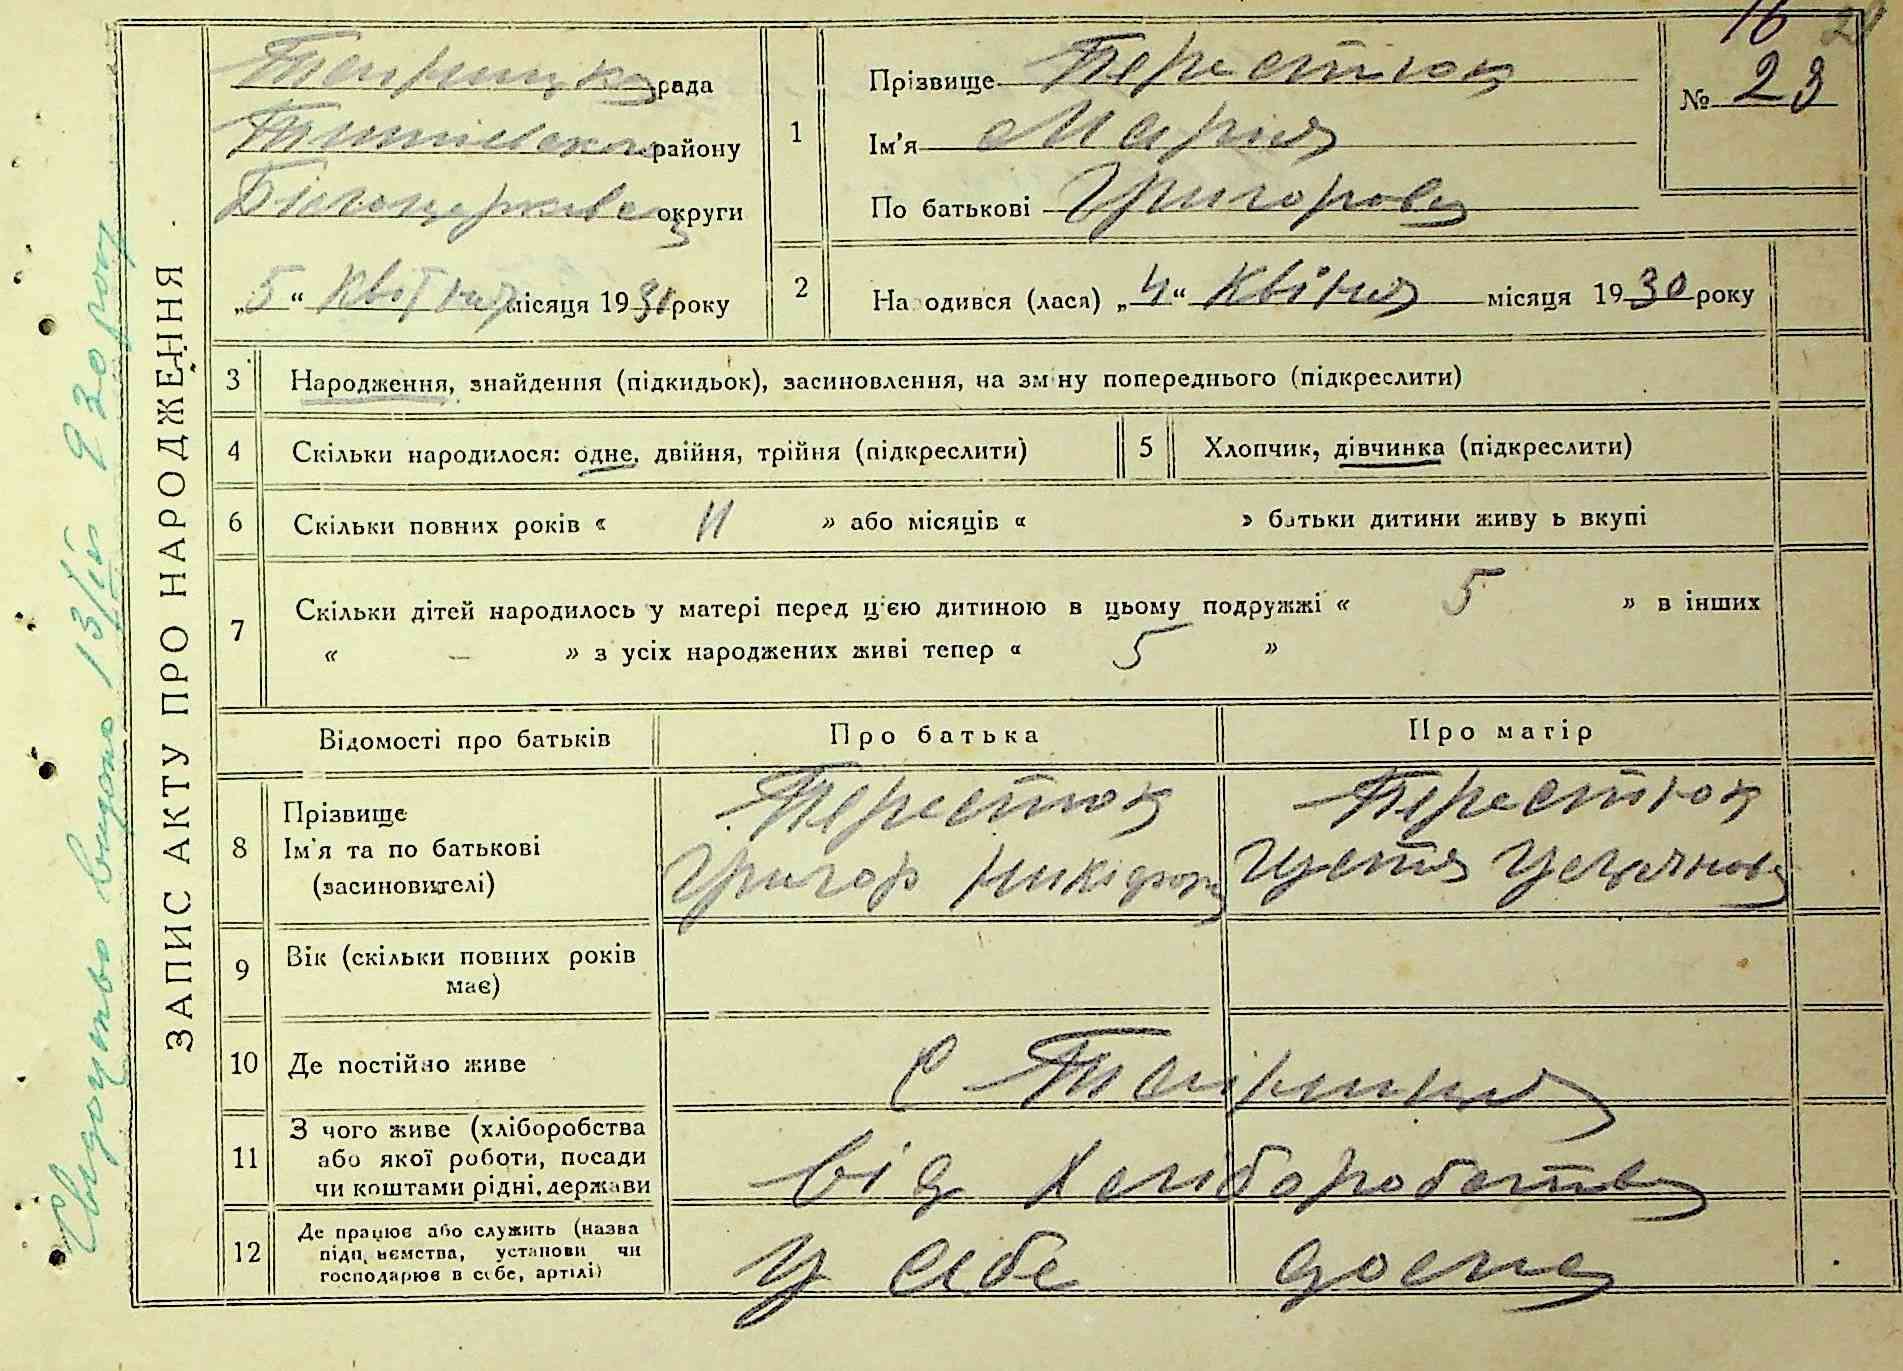 16
Прізвище Перестюк
№ 23
рада
району
Ім'я Марія
Білоцерківс округи
По батькові Григорова
1
„5“ Квітня місяця 1930 року
2
Народився (лася) „4“ Квіня місяця 1930 року
ЗАПИС АКТУ ПРО НАРОДЖЕННЯ
3 Народження, знайдення (підкидьок), засиновлення, на зміну попереднього (підкреслити)
4 Скільки народилося: одне, двійня, трійня (підкреслити)
5 Хлопчик, дівчинка (підкреслити)
6 Скільки повних років « 11 » або місяців « » батьки дитини живуть вкупі
7 Скільки дітей народилось у матері перед цією дитиною в цьому подружжі « 5 » в інших
« – » з усіх народжених живі тепер « 5 »
Відомості про батьків
Про батька
Про матір
8 Прізвище
Ім'я та по батькові
(засиновителі)
Перестюк
Григор Никіфор
Перестюк
Устя
9 Вік (скільки повних років
має)
10 Де постійно живе
с
11 З чого живе (хліборобства
або якої роботи, посади
чи коштами рідні, держави
від Хліборобства
12 Де працює або служить (назва
підприємства, установи чи
господарює в себе, артілі)
у себе дома
Свидоцтво видано 13/IV 930 року